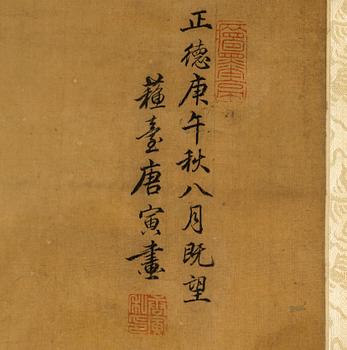 正德庚午秋八月既望
蘓臺唐寅畫